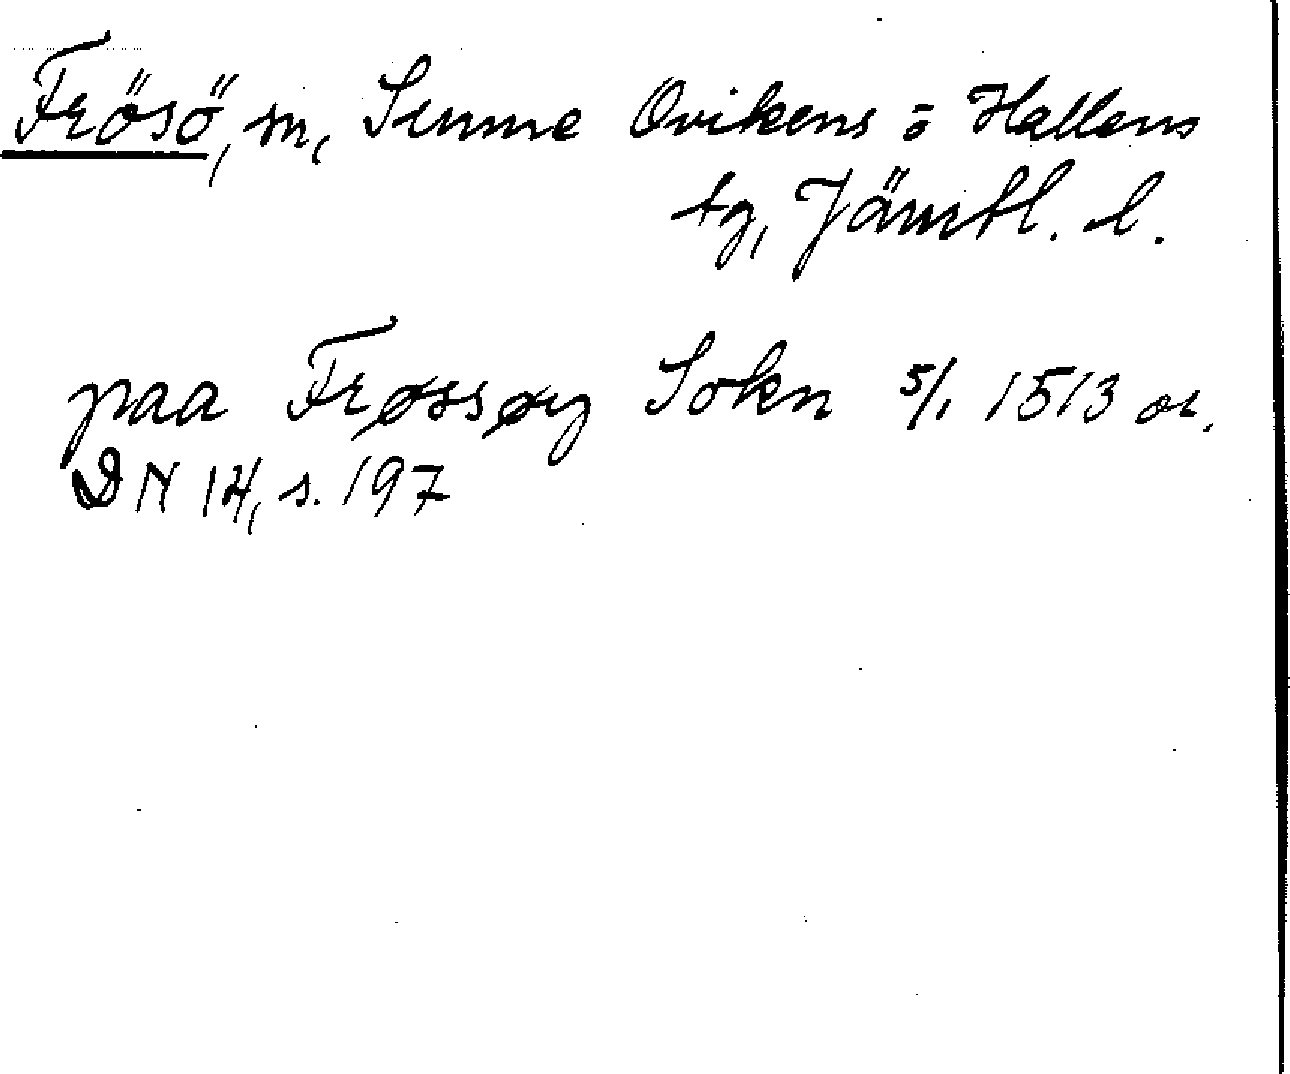 Frösö, sn, Sunne Ovikens o Hallens
tg, Jämtl. l.
paa Frøssøy Sokn 5/1 1513 or.
DN 14, s. 197